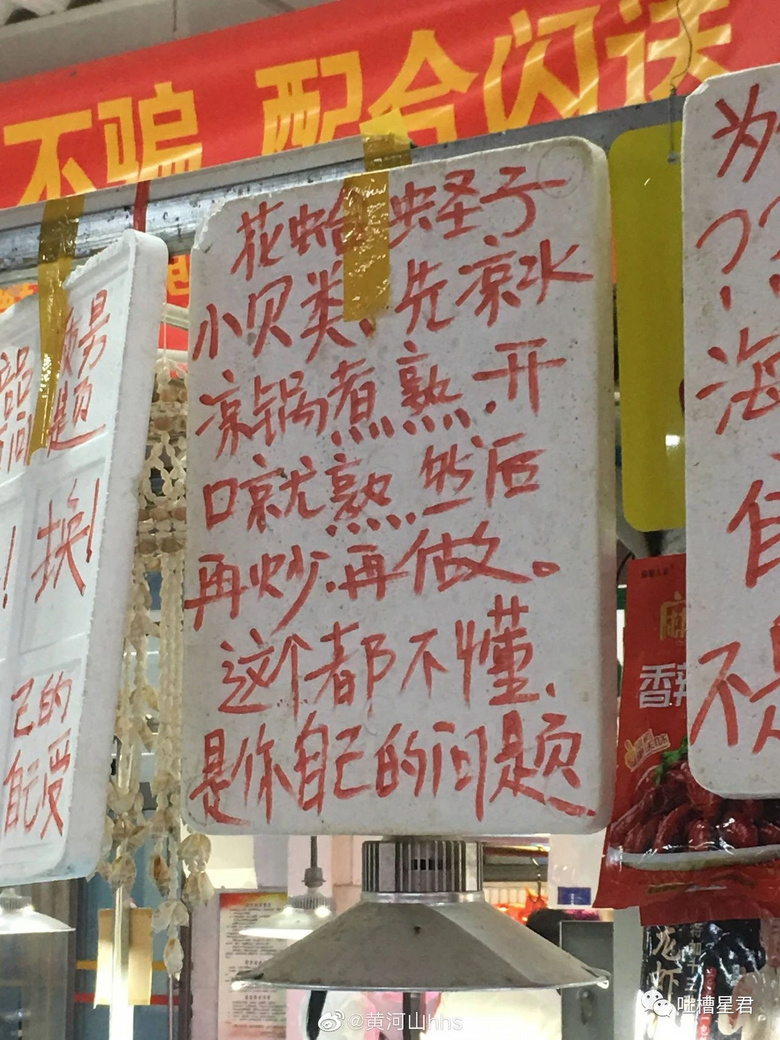 不骗 配合闪送
花蛤 蛏子
小贝类、先凉水
凉锅煮熟.开
口就熟然后
再炒.再做。
这个都不懂.
是你自己的问题
题
换!
己的
自己受
为
??
海
自
不是
香辣
龙虾
@黄河山hhs
吐槽星君